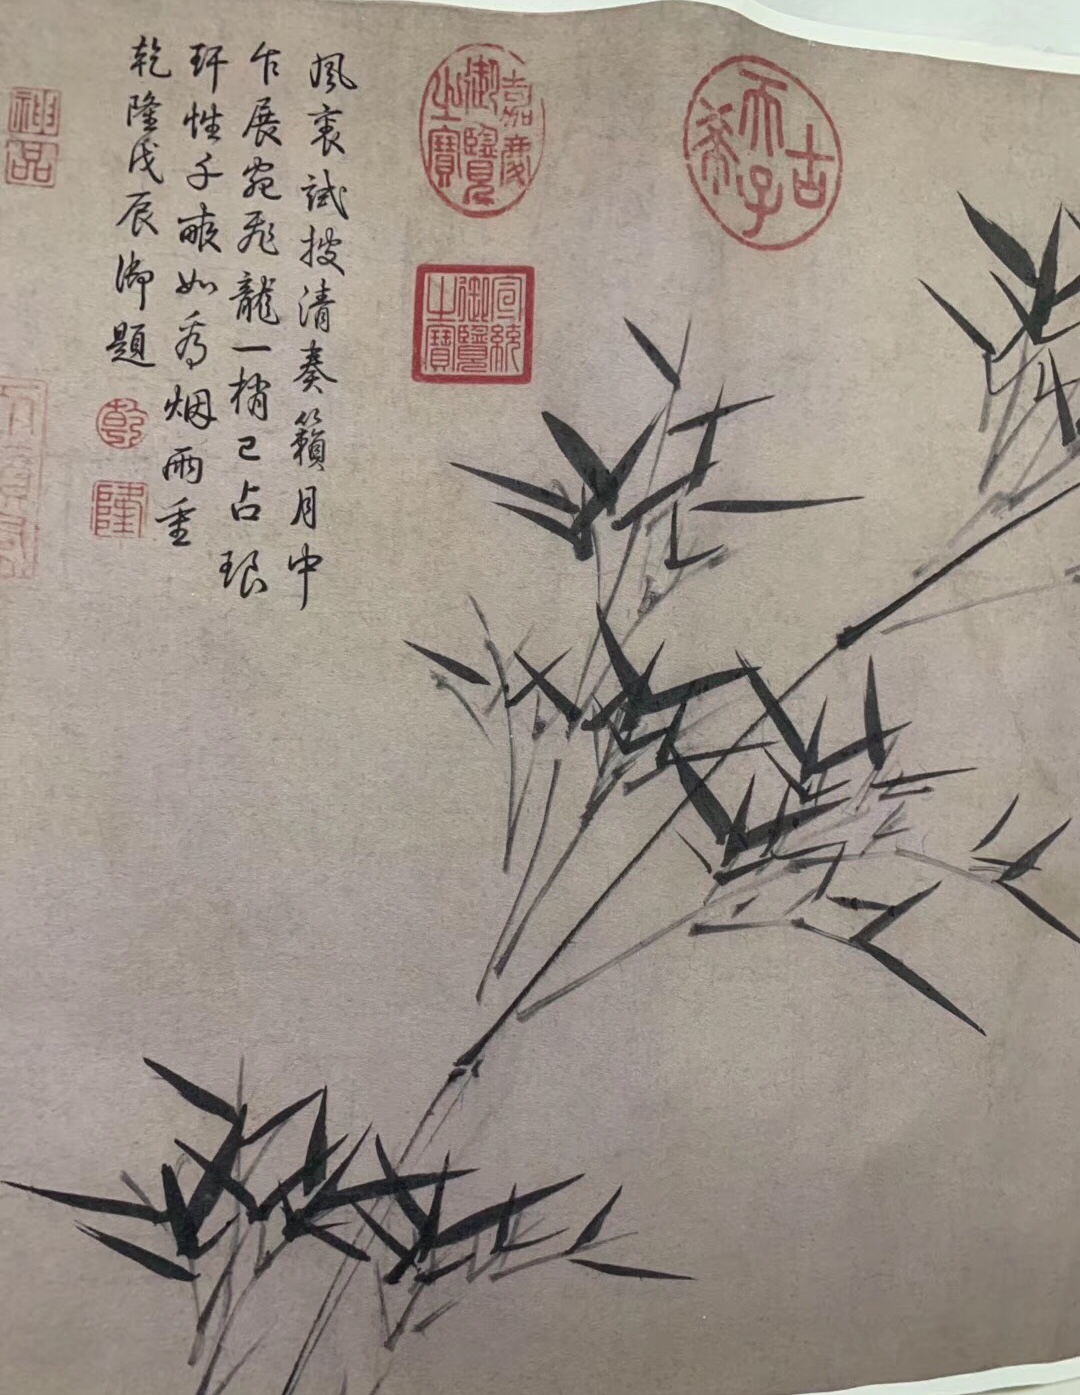 古希天子
嘉慶御覽之寶
宣統御覽之寶
風裏試披清奏籟月中
乍展宛飛龍一梢已占琅
玕性千畝如看烟雨重
乾隆戊辰御題
乾
隆
神品